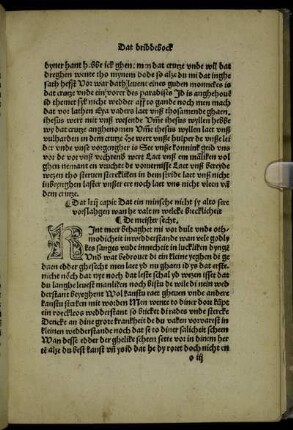 Dat drüddeboek
dyner hant hebbe ick ghen: mm dat crutze vnde wil dat
dreghen wente tho mynem dode so alze du mi dat inghe
sath hefst Vor war dath leuent eines guden monnikes is
dat crutze vnde ein voert des paradises Id is anghehaue
id themet sick nicht wedder aff to gande noch men mach
dat vor lathen Eya vaders laet vnß thosamende ghaen,
ihesus wert mit vnß wesende Vme ihesus wyllen hebbe
wy dat crutze anghenomen Vme ihesus wyllen laet vnß
vulharden in dem crutze He wert vnse hulper de vnse lei
der vnde vnse vorgenger is See vnse konninck geid vns
vor de vor vnß vechtens wert Laet vnß em mänlikē vol
ghen nemant en vuchte de voruernisse Laet vnß bereyde
wezen tho steruen sterckliken in dem stride laet vnß nicht
inbrynghen laster vnser ere noch laet vns nicht vleen vā
dem crutze.
Dat lvij capit Dat ein minsche nicht sy alto sere
vorslahgen wan he valt in welcke brecklicheit
De meister secht.
Kint meer behaghet mi vor dult vnde oth-
modicheit in wedderstande wan vele godly
kes sanges vnde innicheit in luckliken dyngē
Wo wat bedrouet di ein kleine yeghen di ge
daen edder ghesecht men laet yd nu ghaen id ys dat erste
nicht nőch dat nye noch dat leste schal yd wezen isset dat
du langhe leuest manliken noch bistu de wile di nein wed
derstant beyeghent Wol kanstu raet gheuen vnde andere
kanstu stercken mit worden Men wenne to diner dore küpt
ein roeckloes wedderstant so bricket di rades vnde stercke
Dencke an dine grote krankheit de du vaken vorvarest in
kleinen wedderstande noch dat se to diner salicheit scheen
Wan desse edder der ghelike schein sette vor in dinem her
tē alze du best kanst vn ysid dat he dy roret doch nicht en
o iij